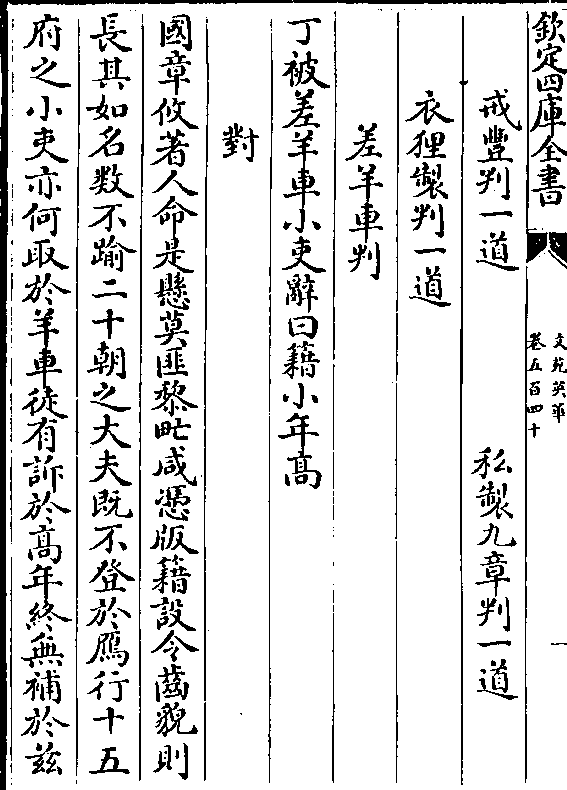 欽定四庫全書
文苑英華
卷五百四十
一
戒豐判一道
私製九章判一道
衣狸製判一道
差羊車判
丁被差羊車小吏辭曰籍小年高
對
國章攸著人命是懸莫匪黎甿咸憑版籍設令齒貌則
長其如名數不踰二十朝之大夫既不登於鴈行十五
府之小吏亦何取於羊車徒有訴於高年終無補於兹